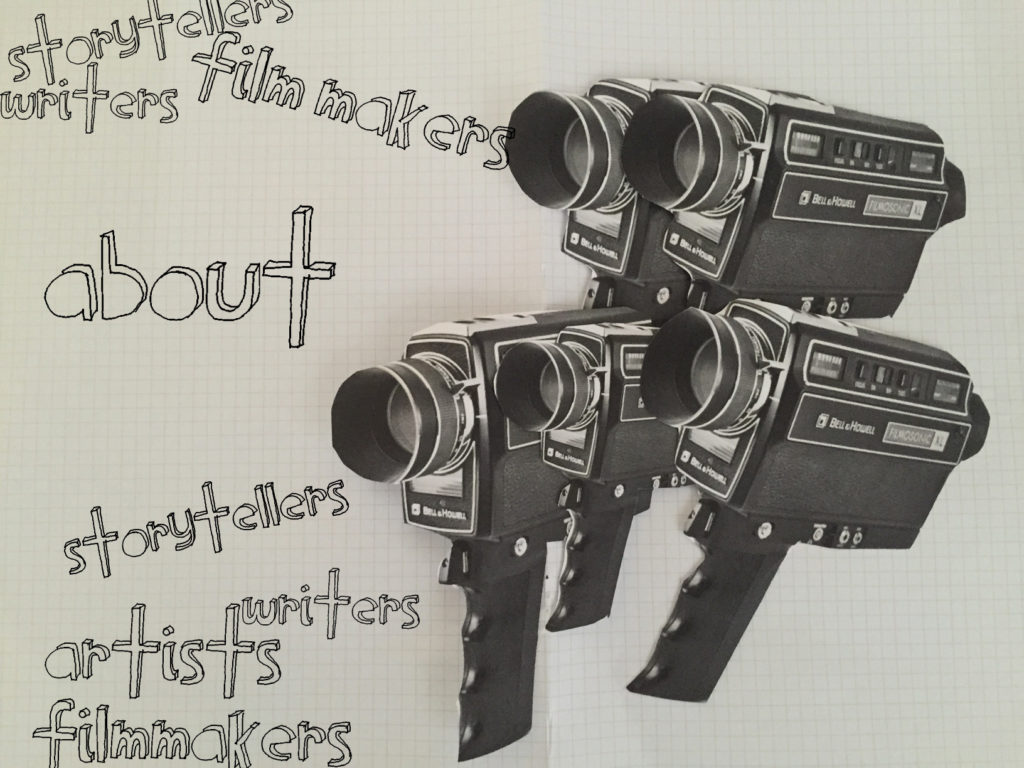 storytellers
writers
film makers
about
storytellers
writers
artists
filmmakers
BELL & HOWELL
BELL & HOWELL
BELL & HOWELL
FILMOSONIC XL
BELL & HOWELL
BELL & HOWELL
BELL & HOWELL
BELL & HOWELL
FILMOSONIC XL